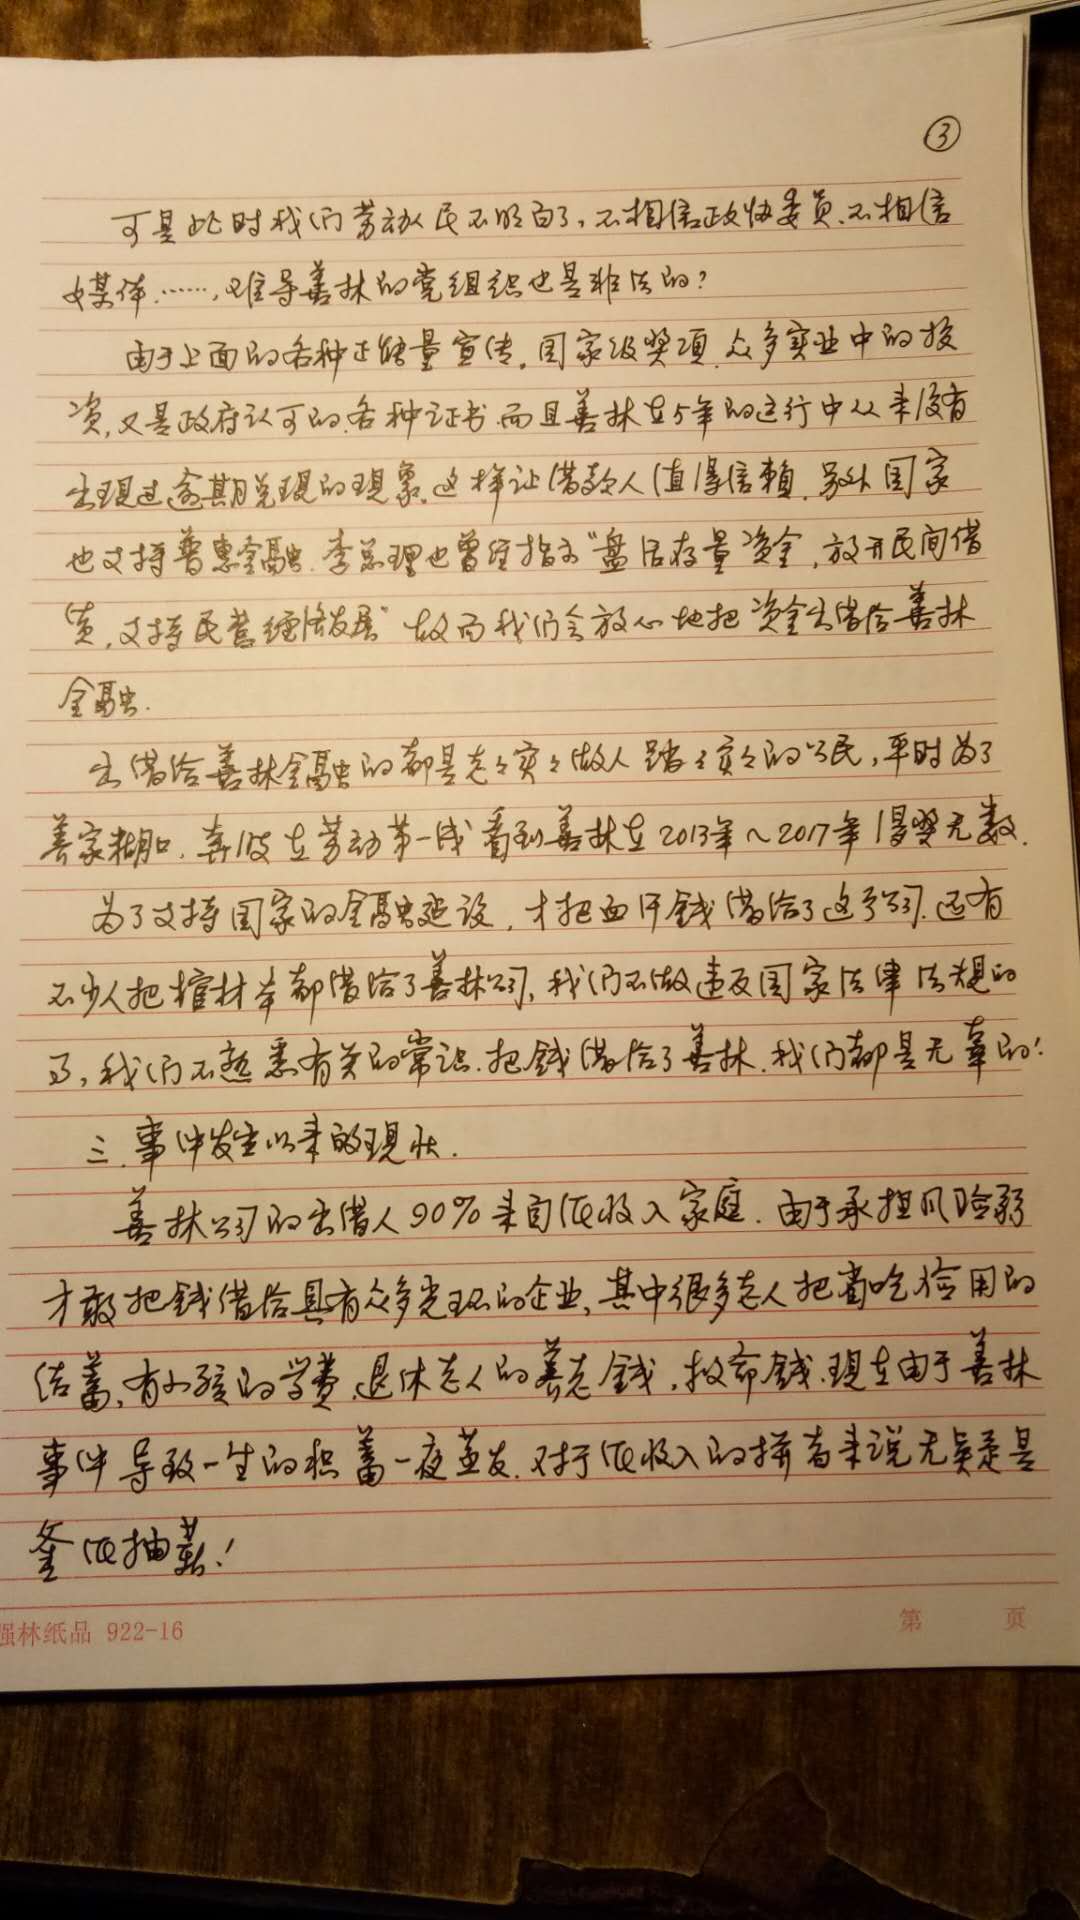 ③
可是此时我们劳动人民不明白了,不相信政协委员、不相信
媒体……,难导善林的党组织也是非法的?
由于上面的各种正能量宣传,国家级奖项、众多实业中的投
资,又是政府认可的各种证书.而且善林在5年的运行中从来没有
出现过逾期兑现的现象,这样让借款人值得信赖.另外国家
也支持普惠金融.李总理也曾经指示"盘活存量资金,放开民间借
贷,支持民营经济发展"故而我们会放心地把资金出借给善林
金融.
出借给善林金融的都是老々实々做人踏々实々的公民,平时为了
养家糊口,奔波在劳动第一线看到善林在2013年~2017年得奖无数.
为了支持国家的金融建设,才把血汗钱借给了这家公司.还有
不少人把棺材本都借给了善林公司,我们不做违反国家法律法规的
了,我们不熟悉有关的常识.把钱借给了善林.我们都是无辜的!
三.事件发生以来的现状.
善林公司的出借人90%来自低收入家庭.由于承担风险弱
才敢把钱借给具有众多光环的企业,其中很多老人把省吃俭用的
结蓄,有小孩的学费.退休老人的养老钱,救命钱.现在由于善林
事件导致一生的积蓄一夜蒸发.对于低收入的拼者来说无疑是
釜底抽薪!
强林纸品 922-16
第 页